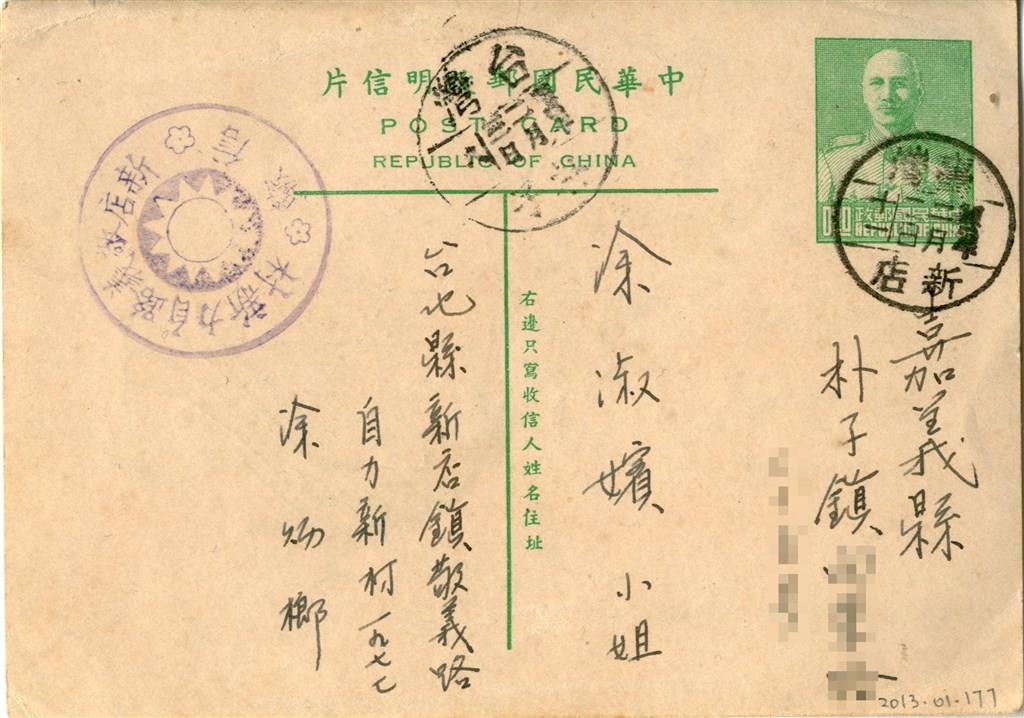 中華民國郵政明信片
POST CARD
REPUBLIC OF CHINA
中華民國郵政
REPUBLIC OF CHINA
臺灣
新店
台灣
嘉義縣
朴子鎮
涂淑嬪小姐
右邊只寫收信人姓名住址
台北縣新店鎮敬義路
自力新村一九七七
涂炳榔
新店敬義路自力新村
2013.01.177